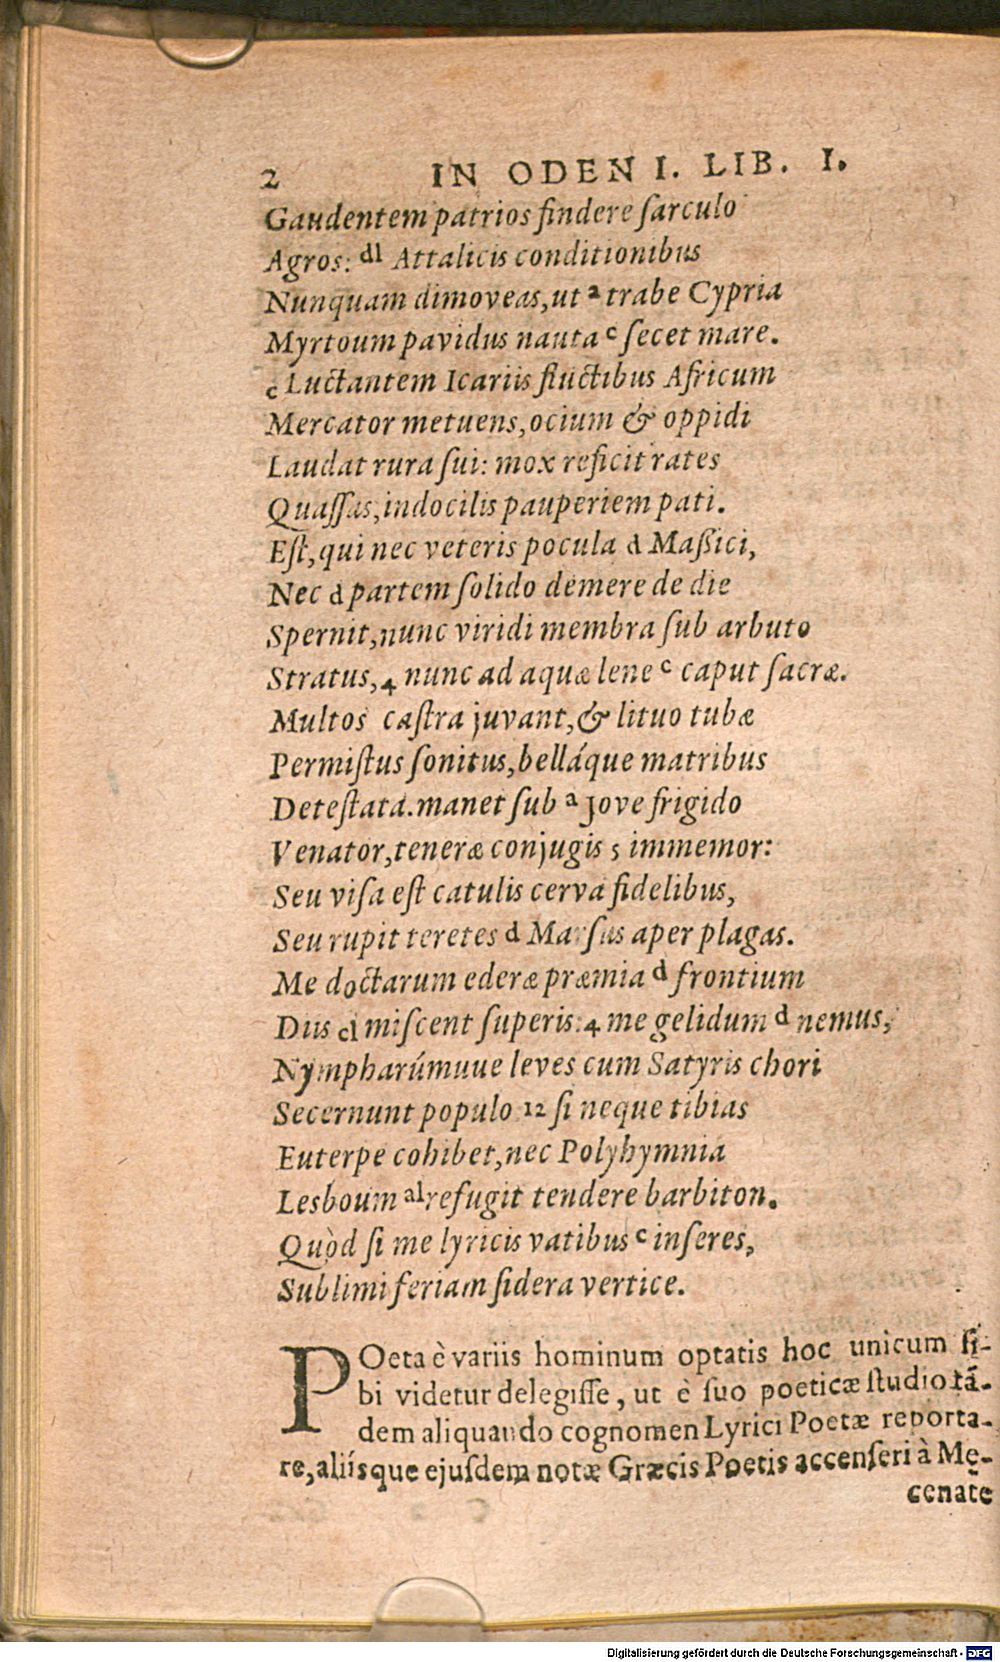 2 IN ODEN I. LIB. I.
Gaudentem patrios findere ſarculo
Agros: dl Attalicis conditionibus
Nunquam dimoveas, ut a trabe Cypria
Myrtoum pavidus nauta c ſecet mare.
c Luctantem Icariis fluctibus Africum
Mercator metuens, ocium & oppidi
Laudat rura ſui: mox reficit rates
Quaſſas, indocilis pauperiem pati.
Eſt, qui nec veteris pocula d Maßici,
Nec d partem ſolido demere de die
Spernit, nunc viridi membra ſub arbuto
Stratus, 4 nunc ad aquæ lene c caput ſacræ.
Multos caſtra juvant, & lituo tubæ
Permiſtus ſonitus, belláque matribus
Deteſtata. manet ſub a Jove frigido
Venator, teneræ conjugis 5 immemor:
Seu viſa eſt catulis cerva fidelibus,
Seu rupit teretes d Marſus aper plagas.
Me doctarum ederæ præmia d frontium
Diis cl miſcent ſuperis: 4 me gelidum d nemus,
Nympharúmuue leves cum Satyris chori
Secernunt populo 12 ſi neque tibias
Euterpe cohibet, nec Polyhymnia
Lesboum al refugit tendere barbiton.
Quòd ſi me lyricis vatibus c inſeres,
Sublimi feriam ſidera vertice.
POeta è variis hominum optatis hoc unicum ſi-
bi videtur delegiſſe, ut è ſuo poeticæ ſtudio tã-
dem aliquando cognomen Lyrici Poetæ reporta-
re, aliísque ejuſdem notæ Græcis Poetis accenſeri à Mę-
cenate
Digitalisierung gefördert durch die Deutsche Forschungsgemeinschaft - DFG